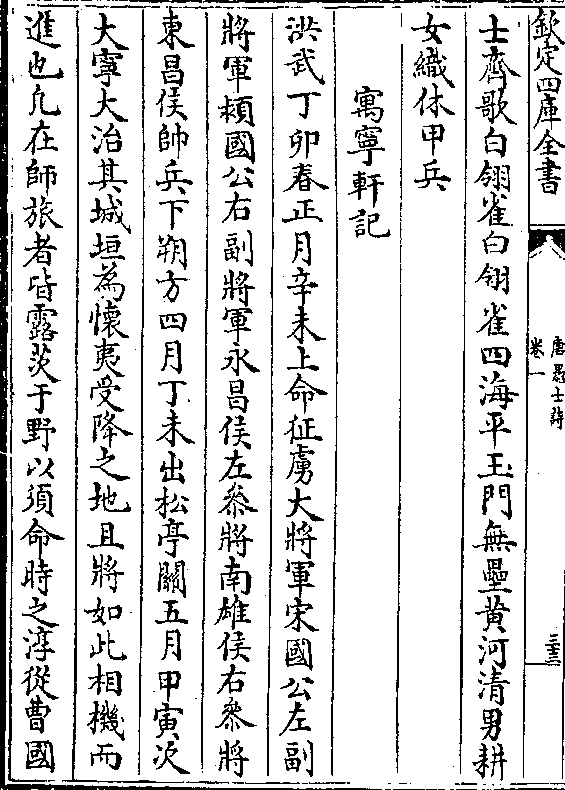 欽定四庫全書
唐愚士詩
卷一
三十三
士齊歌白翎雀白翎雀四海平玉門無壘黄河清男耕
女織休甲兵
寓寧軒記
洪武丁卯春正月辛未上命征虜大將軍宋國公左副
將軍潁國公右副將軍永昌侯左叅將南雄侯右叅將
東昌侯帥兵下朔方四月丁未出松亭關五月甲寅次
大寧大治其城垣為懷夷受降之地且將如此相機而
進也凡在師旅者皆露茇于野以須命時之淳從曹國